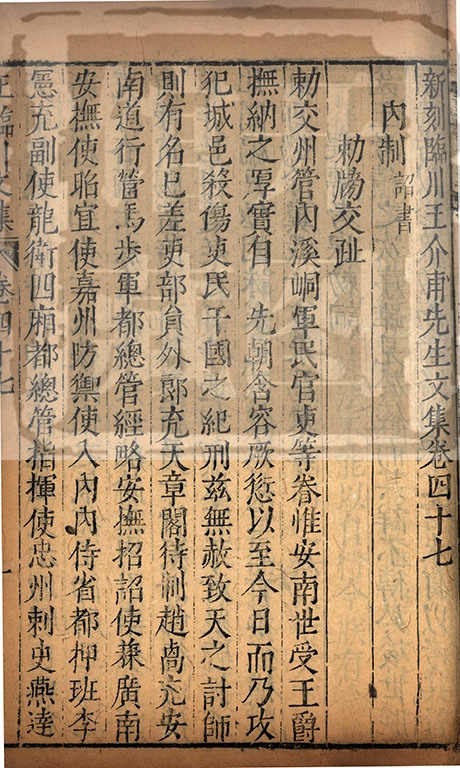 新刻臨川王介甫先生文集卷四十七
內制 詔書
勑牓交趾
勑交州管內溪峒軍民官吏等眷惟安南世受王爵
撫納之厚實自 先朝含容厥愆以至今日而乃攻
犯城邑殺傷吏民干國之紀刑茲無赦致天之討師
則有名已差吏部員外郎充天章閣待制趙卨充安
南道行營馬步軍都總管經略安撫招詔使蒹廣南
安撫使昭宣使嘉州防禦使入內內侍省都押班李
憲充副使龍衛四廂都總管指揮使忠州刺史燕達
王臨川文集 卷四十七 一